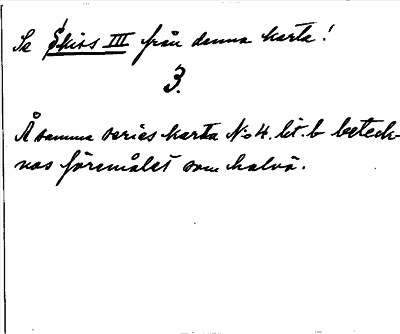 Se Skiss III från denna karta!
3.
Å samma series karta No 4. lit. b beteck-
nas föremålet som halvö.